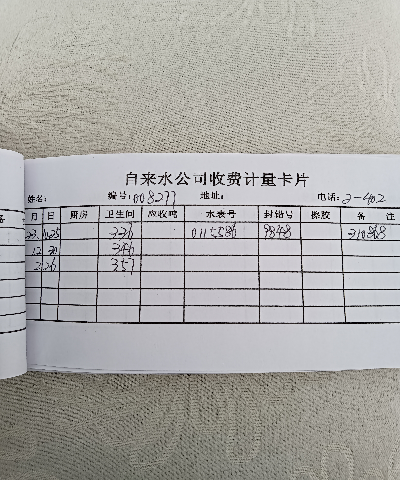 自来水公司收费计量卡片
姓名: 编号:008277 地址: 电话:2-402
月 日 厨房 卫生间 应收吨 水表号 封铅号 换胶 备 注
23.10.25 336 0115586 9848 210868
12 30 346
2.26 357